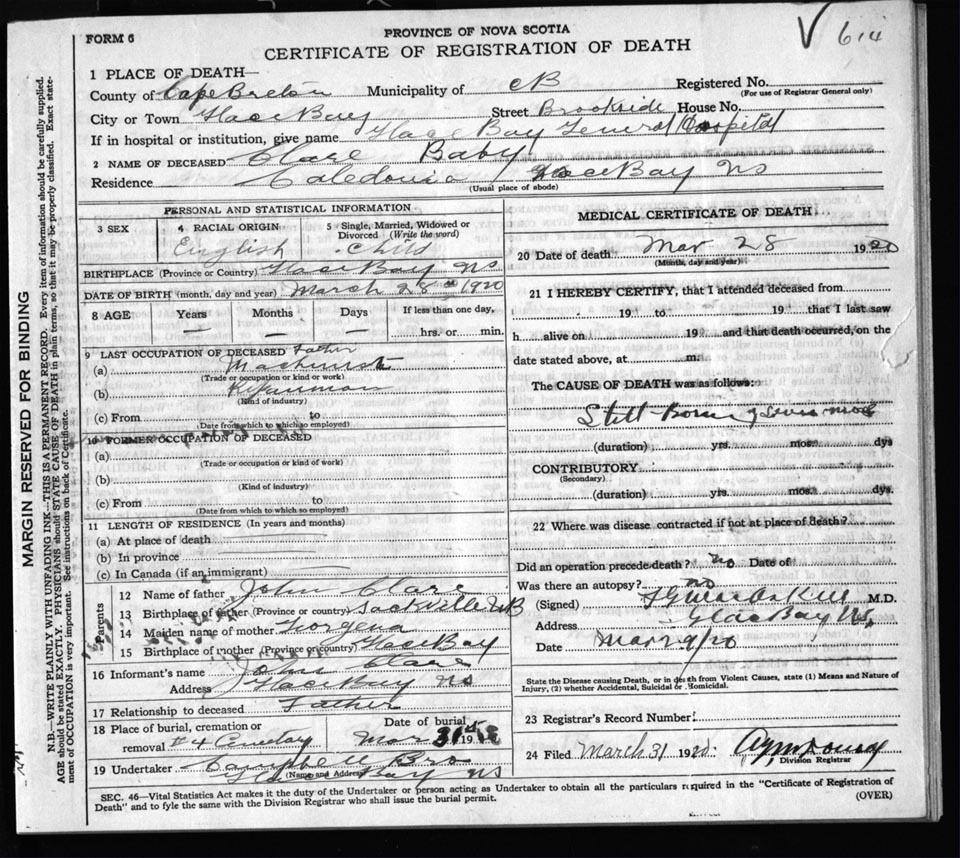 FORM 6
PROVINCE OF NOVA SCOTIA
CERTIFICATE OF REGISTRATION OF DEATH
V 614
1 PLACE OF DEATH—
County of Cape Breton Municipality of CB Registered No.
(For use of Registrar General only)
City or Town Glace Bay Street Brookside House No.
If in hospital or institution, give name Glace Bay General Hospital
2 NAME OF DECEASED Clare Baby
Residence Caledonia Glace Bay NS
(Usual place of abode)
PERSONAL AND STATISTICAL INFORMATION
3 SEX
4 RACIAL ORIGIN
English
5 Single, Married, Widowed or Divorced (Write the word)
Child
BIRTHPLACE (Province or Country) Glace Bay NS
DATE OF BIRTH (month, day and year) March 28 1920
8 AGE Years Months Days If less than one day,
— — — hrs. or min.
9 LAST OCCUPATION OF DECEASED Father
(a) Machinist
(Trade or occupation or kind of work)
(b)
(Kind of industry)
(c) From to
(Date from which to which so employed)
10 FORMER OCCUPATION OF DECEASED
(a)
(Trade or occupation or kind of work)
(b)
(Kind of industry)
(c) From to
(Date from which to which so employed)
11 LENGTH OF RESIDENCE (In years and months)
(a) At place of death
(b) In province
(c) In Canada (if an immigrant)
Parents
12 Name of father John Clare
13 Birthplace of father (Province or country) Sackville NB
14 Maiden name of mother Georgena
15 Birthplace of mother (Province or country) Glace Bay
16 Informant's name John Clare
Address Glace Bay NS
17 Relationship to deceased Father
18 Place of burial, cremation or removal Date of burial
Mar 31st 19
19 Undertaker Campbell Bro
(Name and Address)
Glace Bay NS
MEDICAL CERTIFICATE OF DEATH
20 Date of death Mar 28 1920
(Month, day and year)
21 I HEREBY CERTIFY, that I attended deceased from
19 to 19 that I last saw
h alive on 19 and that death occurred, on the
date stated above, at m.
The CAUSE OF DEATH was as follows:
Still-born
(duration) yrs. mos. dys
CONTRIBUTORY
(Secondary)
(duration) yrs. mos. dys.
22 Where was disease contracted if not at place of death?
Did an operation precede death? no Date of
Was there an autopsy? no
(Signed) M.D.
Address Glace Bay NS
Date Mar 29/20
State the Disease causing Death, or in death from Violent Causes, state (1) Means and Nature of
Injury, (2) whether Accidental, Suicidal or Homicidal.
23 Registrar's Record Number
24 Filed March 31 1920
Division Registrar
SEC. 46—Vital Statistics Act makes it the duty of the Undertaker or person acting as Undertaker to obtain all the particulars required in the "Certificate of Registration of
Death" and to fyle the same with the Division Registrar who shall issue the burial permit.
(OVER)
MARGIN RESERVED FOR BINDING
N.B.—WRITE PLAINLY WITH UNFADING INK—THIS IS A PERMANENT RECORD. Every item of information should be carefully supplied.
AGE should be stated EXACTLY. PHYSICIANS should STATE CAUSE OF DEATH in plain terms, so that it may be properly classified. Exact state-
ment of OCCUPATION is very important. See instructions on back of Certificate.